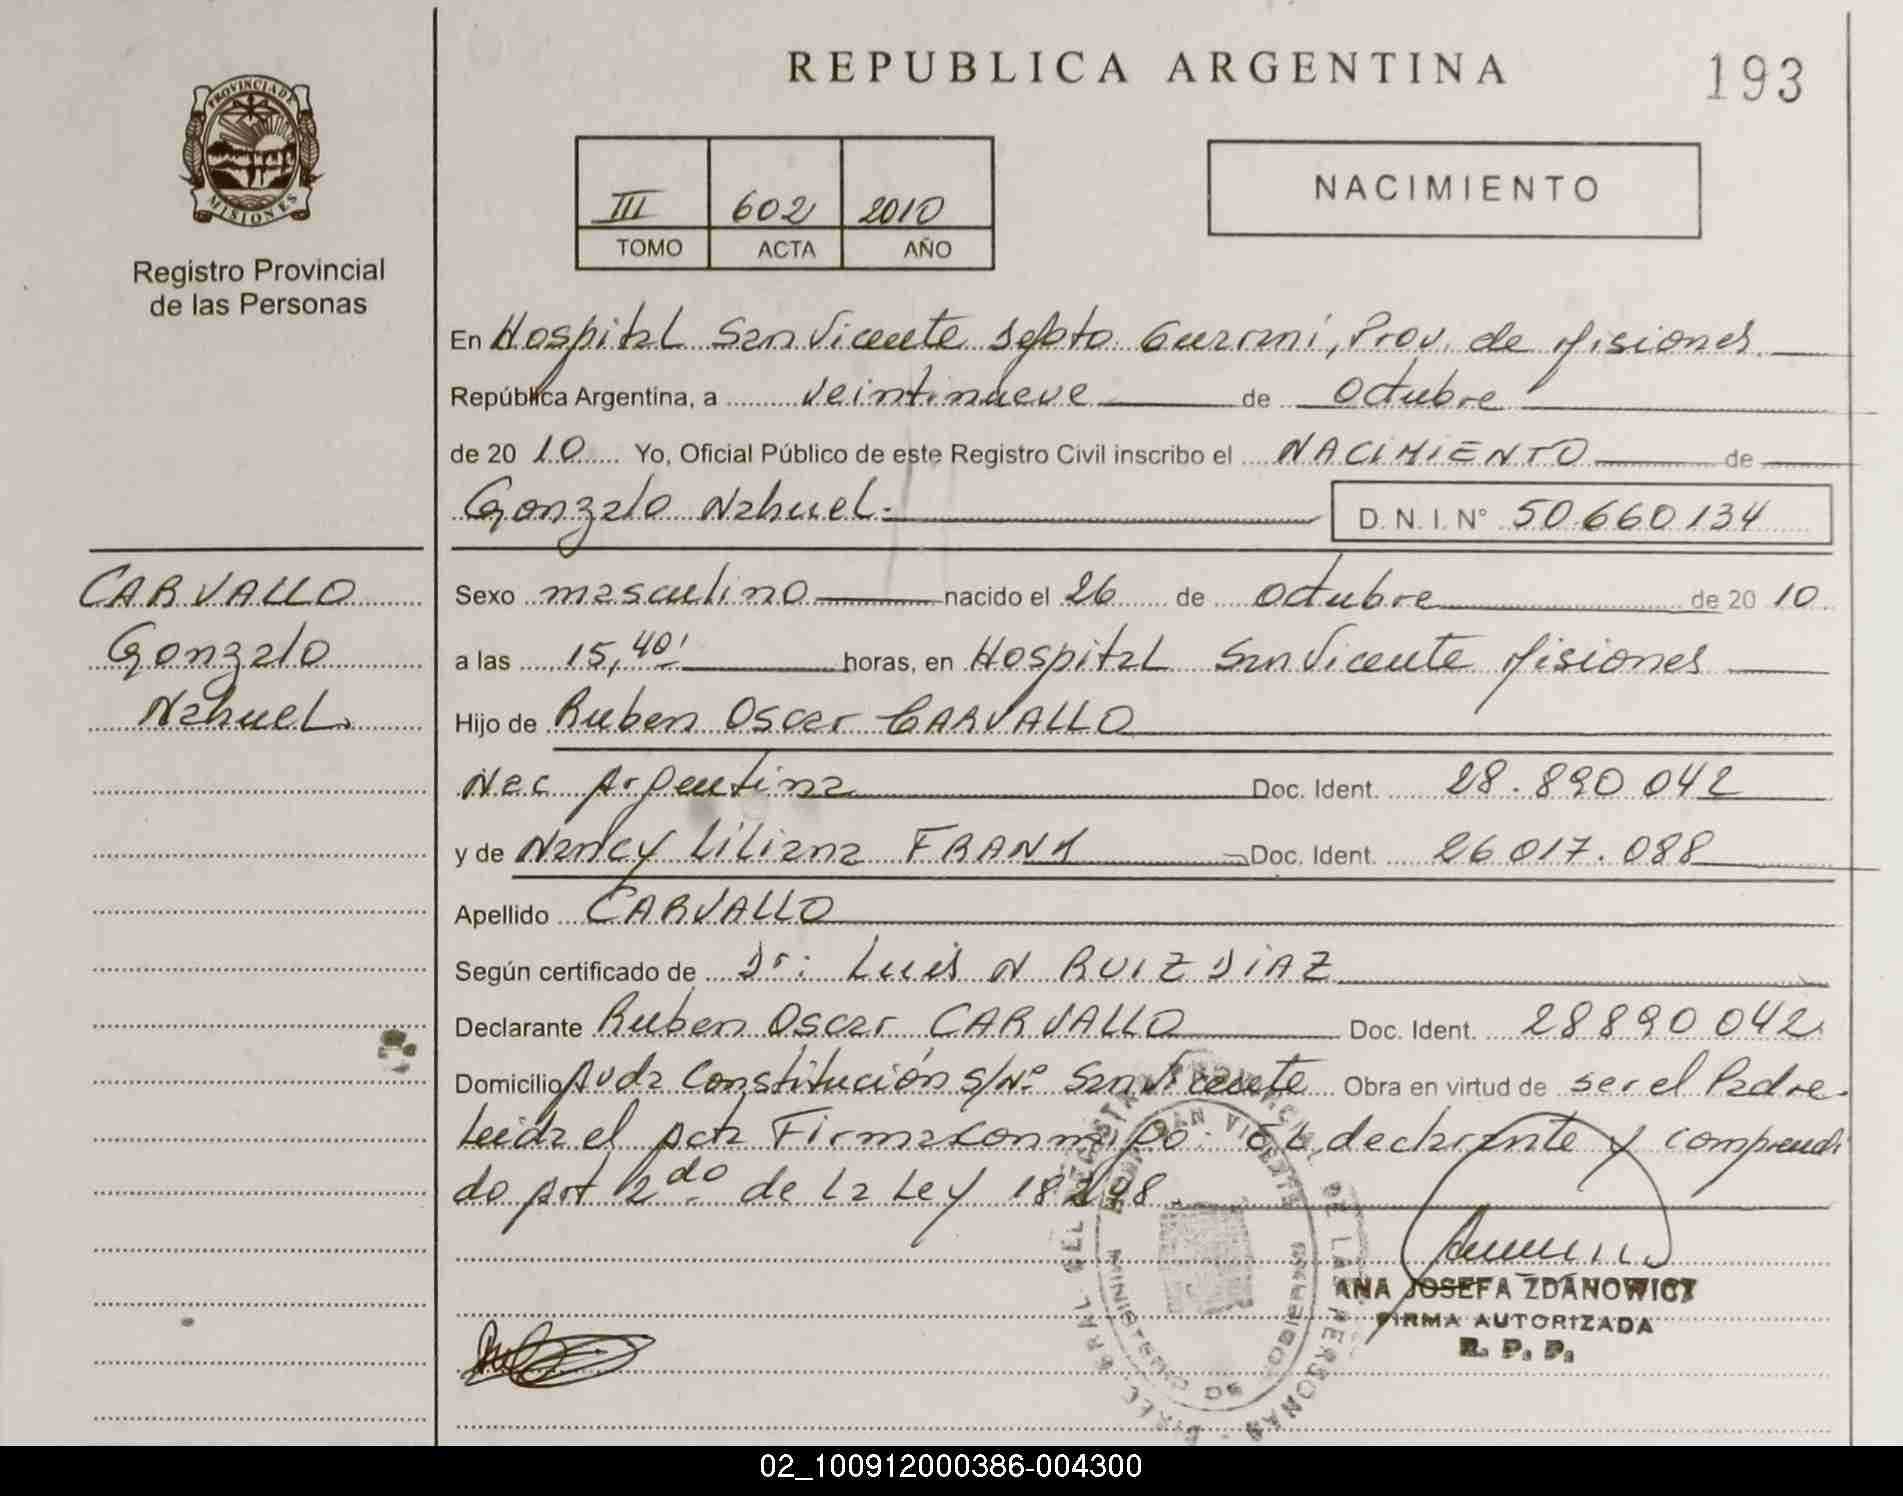 REPUBLICA ARGENTINA
193
PROVINCIA DE
MISIONES
Registro Provincial
de las Personas
III 602 2010
TOMO ACTA AÑO
NACIMIENTO
En Hospital San Vicente Dpto Guaraní, Prov. de Misiones
República Argentina, a veintinueve de Octubre
de 20 10 Yo, Oficial Público de este Registro Civil inscribo el NACIMIENTO de
Gonzalo Nahuel.
D. N. I. N° 50660134
CARVALLO
Gonzalo
Nahuel.
Sexo masculino nacido el 26 de octubre de 20 10.
a las 15,40' horas, en Hospital San Vicente Misiones
Hijo de Ruben Oscar CARVALLO
Nac Argentina Doc. Ident. 28.890 042
y de Nancy Liliana FRANK Doc. Ident. 26 017.088
Apellido CARVALLO
Según certificado de Dr: Luis N RUIZ DIAZ
Declarante Ruben Oscar CARVALLO Doc. Ident. 28890 042
Domicilio Avda Constitución s/Nº San Vicente Obra en virtud de ser el Padre.
Leida el Acta Firma conmigo: El declarante y comprendi
do Art 2do de La Ley 18248.
ANA JOSEFA ZDANOWICZ
FIRMA AUTORIZADA
R. P. P.
02_100912000386-004300